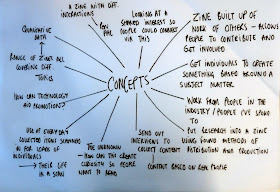 A ZINE WITH DIFF.
INTERACTIONS
PEN
PAL
LOOKING AT A
SHARED INTEREST SO
PEOPLE COULD CONNECT
VIA THIS
ZINE BUILT UP OF
WORK OF OTHERS - ALLOWS
PEOPLE TO CONTRIBUTE AND
GET INVOLVED
GET INDIVIDUALS TO CREATE
SOMETHING BASED AROUND A
SUBJECT MATTER.
WORK FROM PEOPLE IN THE
INDUSTRY / PEOPLE I'VE SPOKE
TO
PUT RESEARCH INTO A ZINE
USING FOUND METHODS OF
DISTRIBUTION AND PRODUCTION
CONTENT BASED ON REAL PEOPLE
SEND OUT
INTERVIEWS TO
COLLECT CONTENT
THE UNKNOWN
- HOW CAN THIS CREATE
CURIOSITY SO PEOPLE
WANT TO READ
USE OF EVERYDAY
COLLECTED ITEMS SCANNED
IN FOR
OF
INDIVIDUALS
THEIR LIFE IN
A SCAN
HOW CAN TECHNOLOGY
AID PROMOTION?
RANGE OF ZINES ALL
COVERING DIFF.
TOPICS
QUANTATIVE
DATA
CONCEPTS